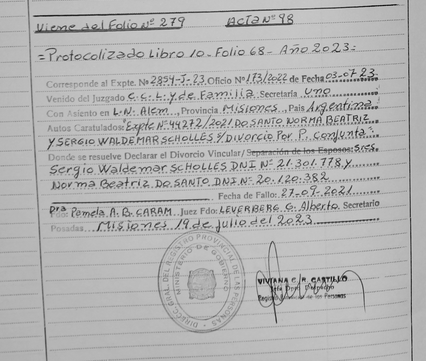 Viene del Folio Nº 279 ACTA Nº 98
=Protocolizado Libro 10-Folio 68-Año 2023=
Corresponde al Expte. Nº 2854-J-23 Oficio Nº 173/2022 de Fecha 03-07-23
Venido del Juzgado C.C.L. y de Familia. Secretaria Uno
Con Asiento en L.N. Alem, Provincia Misiones, Pais Argentina
Autos Caratulados: Expte Nº 44272/2021 DO SANTO NORMA BEATRIZ
Y SERGIO WALDEMAR SCHOLLES s/Divorcio Por P. Conjunta
Donde se resuelve Declarar el Divorcio Vincular/Separación de los Esposos: Sres.
Sergio Waldemar SCHOLLES DNI Nº 21.301.778 y
Norma Beatriz DO SANTO DNI Nº 20.120.382
Fecha de Fallo: 27-09-2021
Dra Pamela A.B. CARAM Juez Fdo: LEVERBERG G. Alberto. Secretario
Posadas Misiones 19 de julio del 2023
DIRECC. GRAL. DEL REGISTRO PROVINCIAL DE LAS PERSONAS
MINISTERIO DE GOBIERNO
VIVIANA C. R. CASTILLO
Registro Provincial de las Personas